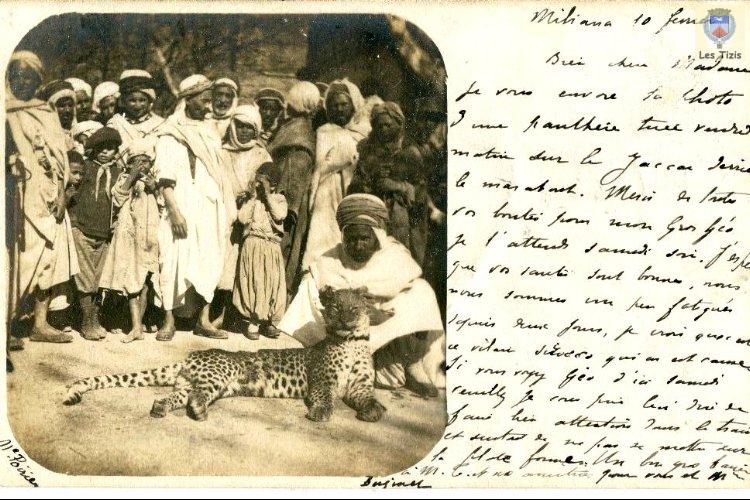 Miliana 10 février
Les Tizis
Bien chère Madame
Je vous envoie la photo
d'une panthère tuée vendredi
matin sur le Zaccar derrière
le marabout. Merci de toutes
vos bontés pour mon gros Géo
je l'attends samedi soir. J'espère
que vos santés sont bonnes, nous
nous sommes un peu fatigués
depuis deux jours, je crois que c'est
ce vilain sirocco qui en est cause
Si vous voyez Géo d'ici samedi
veuillez je vous prie lui dire de
faire bien attention dans le train
et surtout de ne pas se mettre sur
la plate forme. Un bon gros
pour vous et M